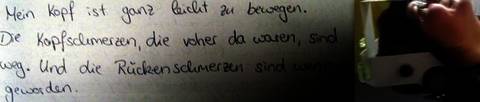 Mein Kopf ist ganz leicht zu bewegen.
Die Kopfschmerzen, die voher da waren, sind
weg. Und die Rückenschmerzen sind
geworden.